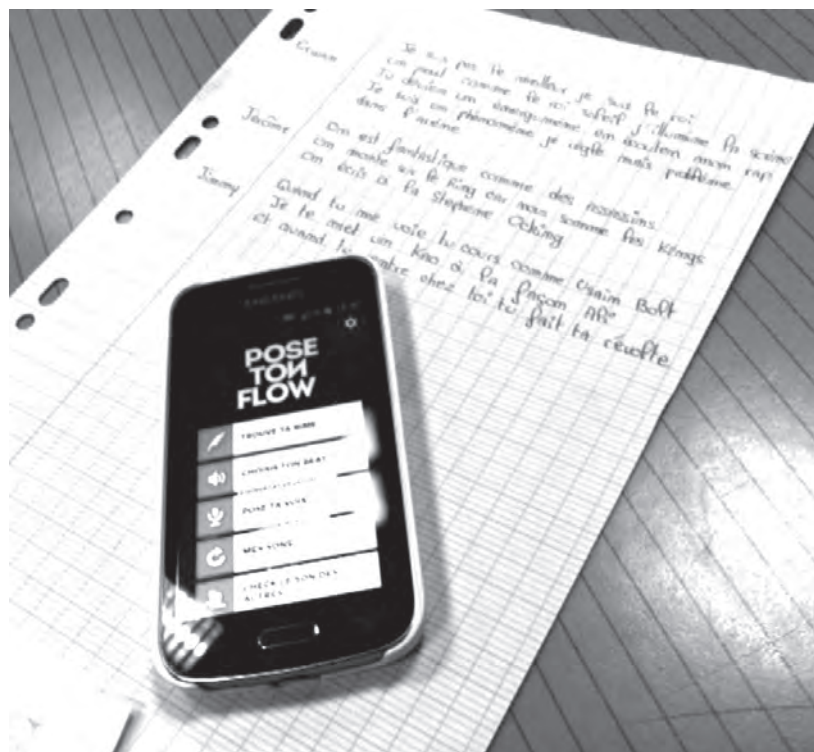 Erwan
Je suis pas le meilleur je suis le roi
un peut comme le roi soleil j'illumine la scène
Tu devien un énergumène en écoutem mon rap
Je suis un phénomème je règle mais problème
dans l'arème
Jérôme
On est fantastique comme des assassins
On monte sur le Ring car nous somme les Kings
On écis à la Stephene
Jimmy
Quand tu me voie tu cours comme Usaim Bolt
Je te met un Kao à la façom Ali
et quand tu rentre chez toi tu fait ta révolte
SAMSUNG
POSE
TON
FLOW
TROUVE TA RIME
CHOISIS TON BEAT
POSE TA VOIX
MES SONS
CHECK LE SON DES
AUTRES